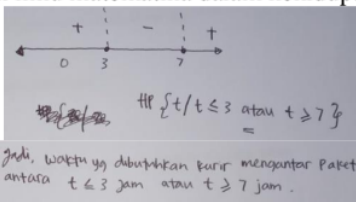 + - +
0 3 7
HP {t/t ≤ 3 atau t ≥ 7}
Jadi, waktu yg dibutuhkan kurir mengantar Paket
antara t ≤ 3 Jam atau t ≥ 7 jam.